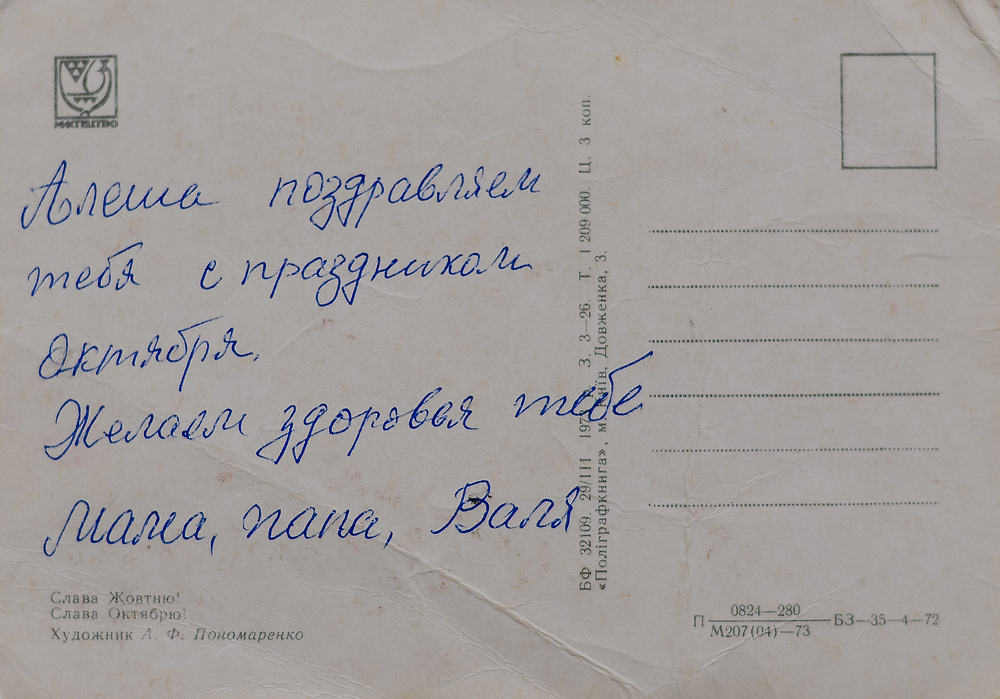 МИСТЕЦТВО
Алеша поздравляем
тебя с праздником
октября.
Желаем здоровья тебе
мама, папа, Валя
Слава Жовтню!
Слава Октябрю!
Художник А. Ф. Пономаренко
БФ 32109. 29/III З. 3—26. Т. 1 209 000. Ц. 3 коп.
«Поліграфкнига», м. Київ, Довженка, 3.
П 0824—280 БЗ—35—4—72
М207(04)—73